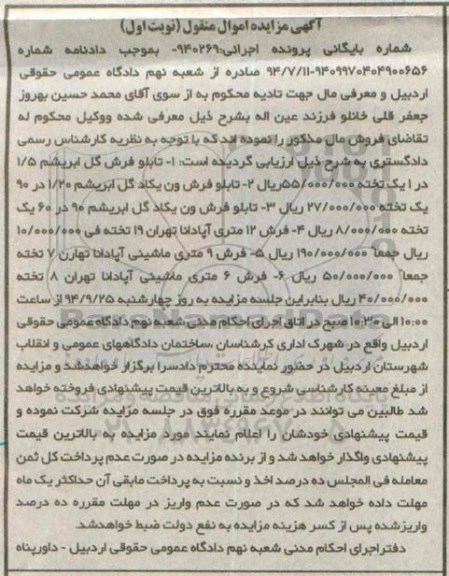 آگهی مزایده اموال منقول (نوبت اول)
شماره بایگانی پرونده اجرائی:۹۴۰۲۶۹- بموجب دادنامه شماره
۹۴۰۹۹۷۰۴۰۴۹۰۰۶۵۶-۹۴/۷/۱۱ صادره از شعبه نهم دادگاه عمومی حقوقی
اردبیل و معرفی مال جهت تادیه محکوم به از سوی آقای محمد حسین بهروز
جعفر قلی خانلو فرزند عین اله بشرح ذیل معرفی شده ووکیل محکوم له
تقاضای فروش مال مذکور را نموده اند که با توجه به نظریه کارشناس رسمی
دادگستری به شرح ذیل ارزیابی گردیده است: ۱- تابلو فرش گل ابریشم ۱/۵
در ۱ یک تخته ۵۵/۰۰۰/۰۰۰ریال ۲- تابلو فرش ون یکاد گل ابریشم ۱/۲۰ در ۹۰
یک تخته ۲۷/۰۰۰/۰۰۰ ریال ۳- تابلو فرش ون یکاد گل ابریشم ۹۰ در ۶۰ یک
تخته ۸/۰۰۰/۰۰۰ ریال ۴- فرش ۱۲ متری آپادانا تهران ۱۹ تخته فی ۱۰/۰۰۰/۰۰۰
ریال جمعاً ۱۹۰/۰۰۰/۰۰۰ ریال ۵- فرش ۹ متری ماشینی آپادانا تهارن ۷ تخته
جمعاً ۵۰/۰۰۰/۰۰۰ ریال ۶- فرش ۶ متری ماشینی آپادانا تهران ۸ تخته
۴۰/۰۰۰/۰۰۰ ریال بنابراین جلسه مزایده به روز چهارشنبه ۹۴/۹/۲۵ از ساعت
۱۰:۰۰ الی ۱۰:۳۰ صبح در اتاق اجرای احکام مدنی شعبه نهم دادگاه عمومی حقوقی
اردبیل واقع در شهرک اداری کرشناسان ،ساختمان دادگاههای عمومی و انقلاب
شهرستان اردبیل در حضور نماینده محترم دادسرا برگزار خواهدشد و مزایده
از مبلغ معینه کارشناسی شروع و به بالاترین قیمت پیشنهادی فروخته خواهد
شد طالبین می توانند در موعد مقرره فوق در جلسه مزایده شرکت نموده و
قیمت پیشنهادی خودشان را اعلام نمایند مورد مزایده به بالاترین قیمت
پیشنهادی واگذار خواهد شد و از برنده مزایده در صورت عدم پرداخت کل ثمن
معامله فی المجلس ده درصد اخذ و نسبت به پرداخت مابقی آن حداکثر یک ماه
مهلت داده خواهد شد که در صورت عدم واریز در مهلت مقرره ده درصد
واریزشده پس از کسر هزینه مزایده به نفع دولت ضبط خواهدشد.
دفتر اجرای احکام مدنی شعبه نهم دادگاه عمومی حقوقی اردبیل - داورپناه